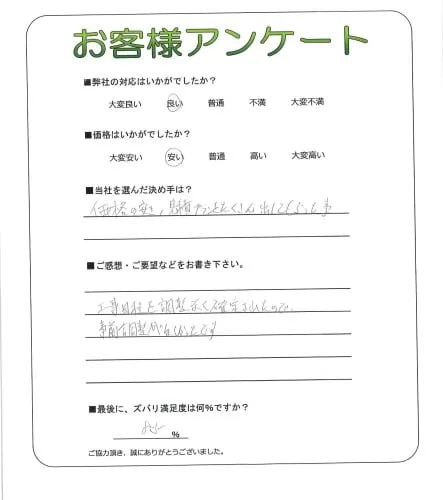 お客様アンケート
■弊社の対応はいかがでしたか？
大変良い 良い 普通 不満 大変不満
■価格はいかがでしたか？
大変安い 安い 普通 高い 大変高い
■当社を選んだ決め手は？
価格の安さ、見積プランをたくさん出してもらった事
■ご感想・ご要望などをお書き下さい。
工事日程を調整なく確定されたので、
事前に調整がほしかったです
■最後に、ズバリ満足度は何%ですか？
%
ご協力頂き、誠にありがとうございました。